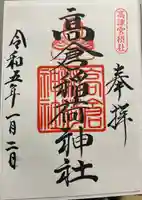 高津宮摂社
奉拝
高倉稲荷神社
令和五年一月二日